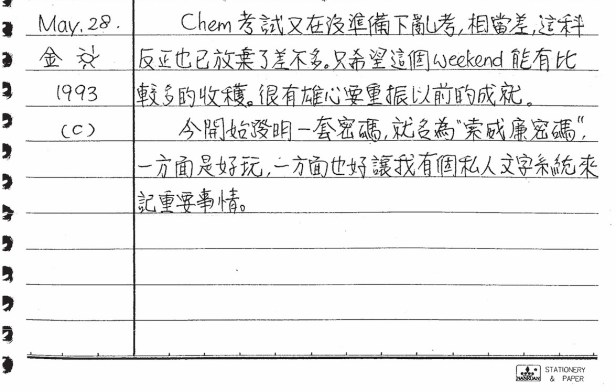 May. 28. Chem 考試又在沒準備下亂考，相當差，這科
金 ☼ 反正也已放棄了差不多。只希望這個weekend 能有比
1993 較多的收穫。很有雄心要重振以前的成就。
(C) 今開始發明一套密碼，就名為"索威廉密碼"，
一方面是好玩，一方面也好讓我有個私人文字系統來
記重要事情。
STATIONERY
& PAPER